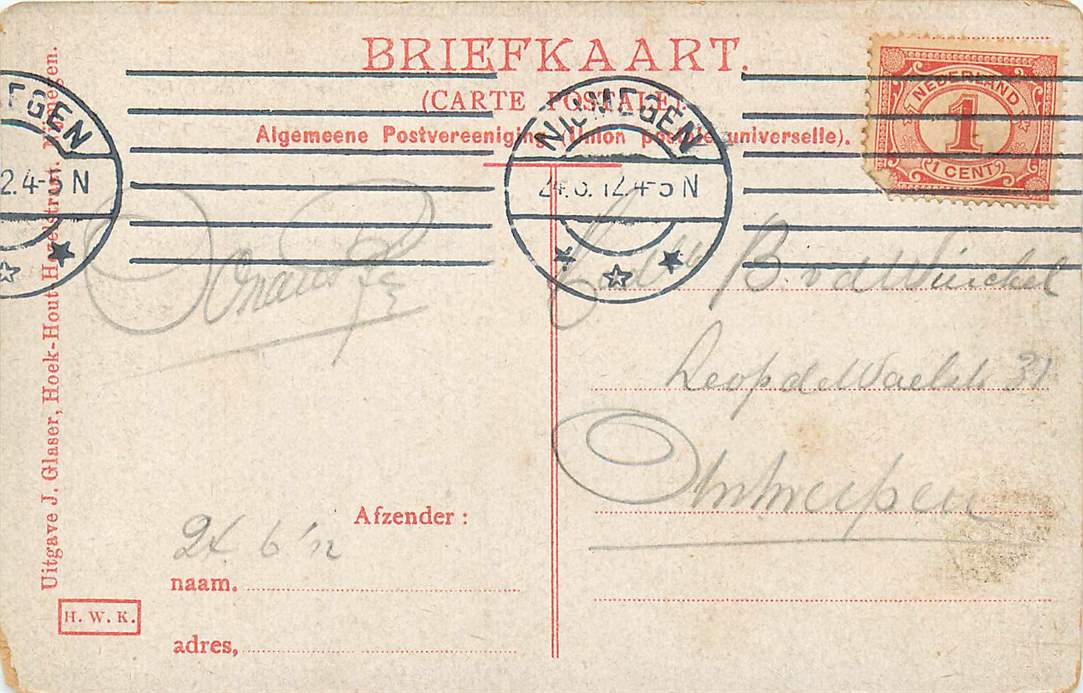 BRIEFKAART.
(CARTE POSTALE)
Algemeene Postvereeniging (Union postale universelle).
NEDERLAND
1
1 CENT
NIJMEGEN
24.6.12.4-5 N
EGEN
2.4-5 N
B. v d Winckel
Leop de Waelstr 31
Antwerpen
Afzender :
24 6 '12
naam.
adres,
Uitgave J. Glaser, Hoek-Hout-Hezelstraat. Nijmegen.
H. W. K.